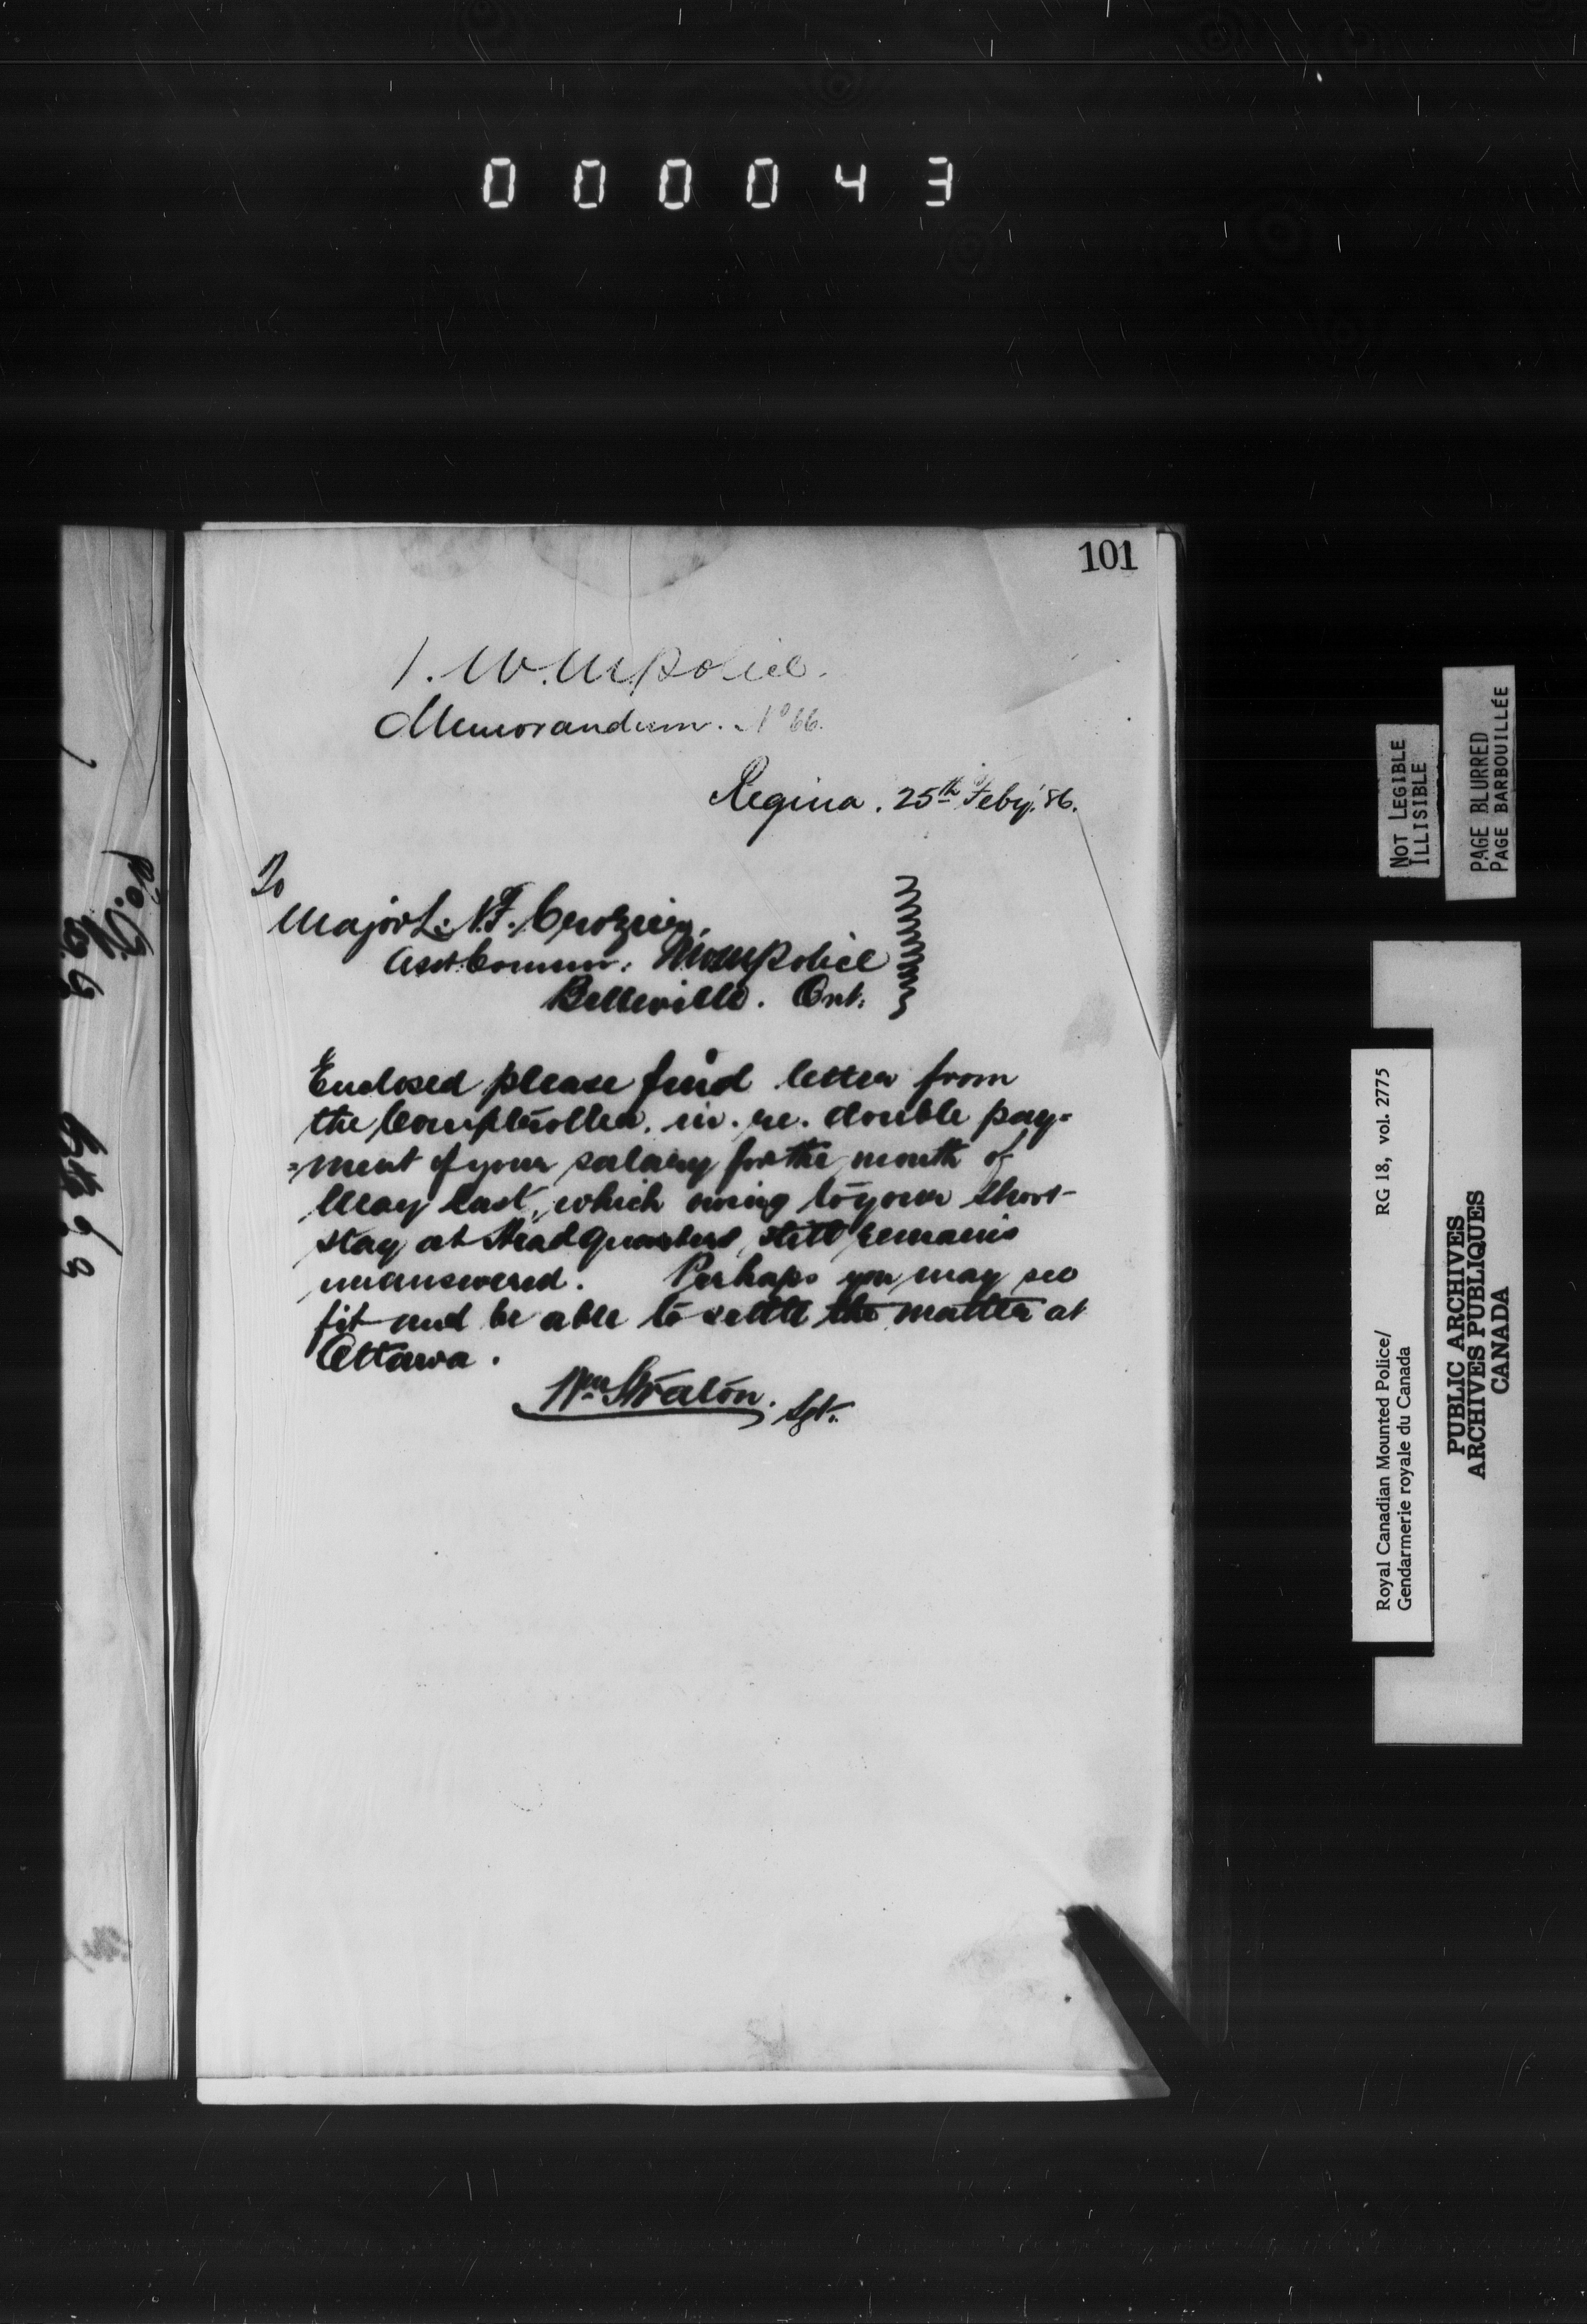 0 0 0 0 4 3
101
N. W. M. Police.
Memorandum. No 66.
Regina. 25th Feby. '86.
To
Major L. N. F. Crozier,
Asst. Commr. N.W.M. Police
Belleville. Ont.
Enclosed please find letter from
the Comptroller. in. re. double pay=
=ment of your salary for the month of
May last, which owing to your short
stay at Head Quarters, still remains
unanswered. Perhaps you may see
fit and be able to settle the matter at
Ottawa.
Wm Straton. Sgt.
NOT LEGIBLE
ILLISIBLE
PAGE BLURRED
PAGE BARBOUILLÉE
Royal Canadian Mounted Police/ RG 18, vol. 2775
Gendarmerie royale du Canada
PUBLIC ARCHIVES
ARCHIVES PUBLIQUES
CANADA